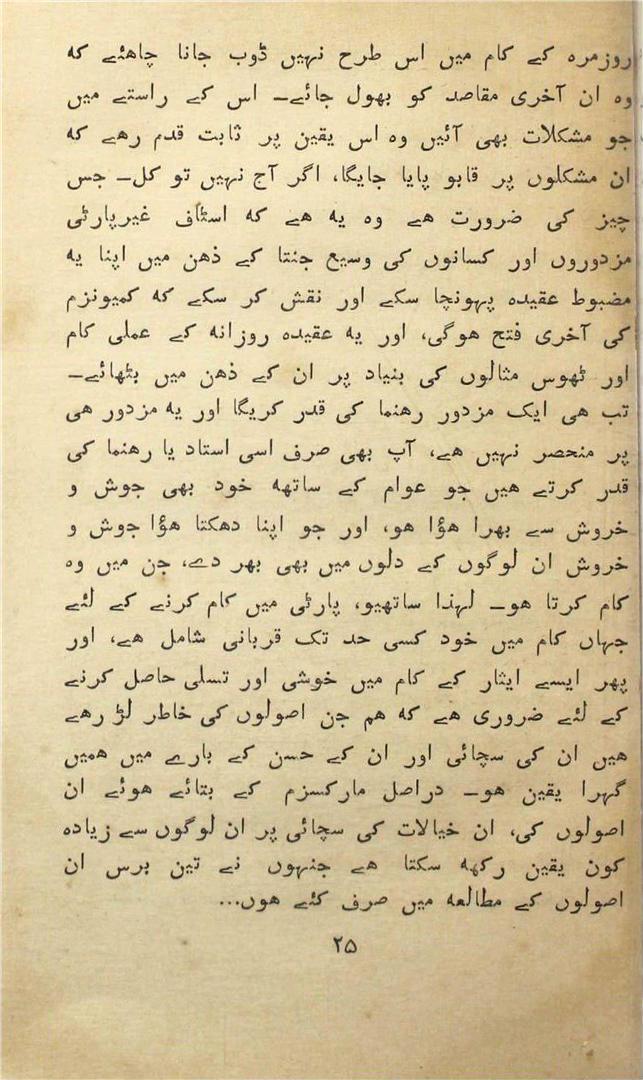 روزمرہ کے کام میں اس طرح نہیں ڈوب جانا چاہئے کہ
وہ ان آخری مقاصد کو بھول جائے۔ اس کے راستے میں
جو مشکلات بھی آئیں وہ اس یقین پر ثابت قدم رہے کہ
ان مشکلوں پر قابو پایا جایگا، اگر آج نہیں تو کل۔ جس
چیز کی ضرورت ہے وہ یہ ہے کہ اسٹاف غیرپارٹی
مزدوروں اور کسانوں کی وسیع جنتا کے ذہن میں اپنا یہ
مضبوط عقیدہ پہونچا سکے اور نقش کر سکے کہ کمیونزم
کی آخری فتح ہوگی، اور یہ عقیدہ روزانہ کے عملی کام
اور ٹھوس مثالوں کی بنیاد پر ان کے ذہن میں بٹھائے۔
تب ہی ایک مزدور رہنما کی قدر کریگا اور یہ مزدور ہی
پر منحصر نہیں ہے، آپ بھی صرف اسی استاد یا رہنما کی
قدر کرتے ہیں جو عوام کے ساتھ خود بھی جوش و
خروش سے بھرا ہؤا ہو، اور جو اپنا دھکتا ہؤا جوش و
خروش ان لوگوں کے دلوں میں بھی بھر دے، جن میں وہ
کام کرتا ہو۔ لہذا ساتھیو، پارٹی میں کام کرنے کے لئے
جہاں کام میں خود کسی حد تک قربانی شامل ہے، اور
پھر ایسے ایثار کے کام میں خوشی اور تسلی حاصل کرنے
کے لئے ضروری ہے کہ ہم جن اصولوں کی خاطر لڑ رہے
ہیں ان کی سچائی اور ان کے حسن کے بارے میں ہمیں
گہرا یقین ہو۔ دراصل مارکسزم کے بتائے ہوئے ان
اصولوں کی، ان خیالات کی سچائی پر ان لوگوں سے زیادہ
کون یقین رکھ سکتا ہے جنہوں نے تین برس ان
اصولوں کے مطالعہ میں صرف کئے ہوں...
۲۵